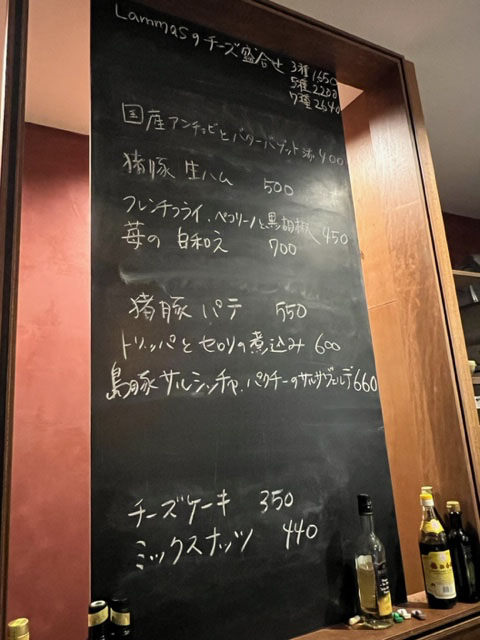 Lammasのチーズ盛合せ 3種 1650
5種 2200
7種 2640
国産アンチョビとバターバゲット 400
猪豚 生ハム 500
フレンチフライ、ペコリーノと黒胡椒 450
苺の白和え 700
猪豚 パテ 550
トリッパとセロリの煮込み 600
島豚サルシッチャ、パクチーのサルサヴェルデ 660
チーズケーキ 350
ミックスナッツ 440